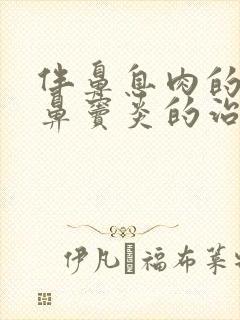 伴鼻息肉的
鼻窦炎的治
伊凡·福布菜